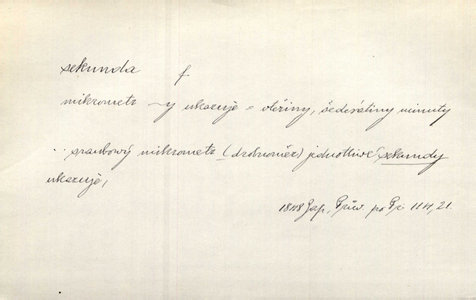 sekunda f.
mikrometr ~y ukazuje = vteřiny, šedesátiny minuty
.. šraubový mikrometr (drobnoměr) jednotlivé sekundy
ukazuje,
1848 Jap. Prův. po Pr. 114, 21.